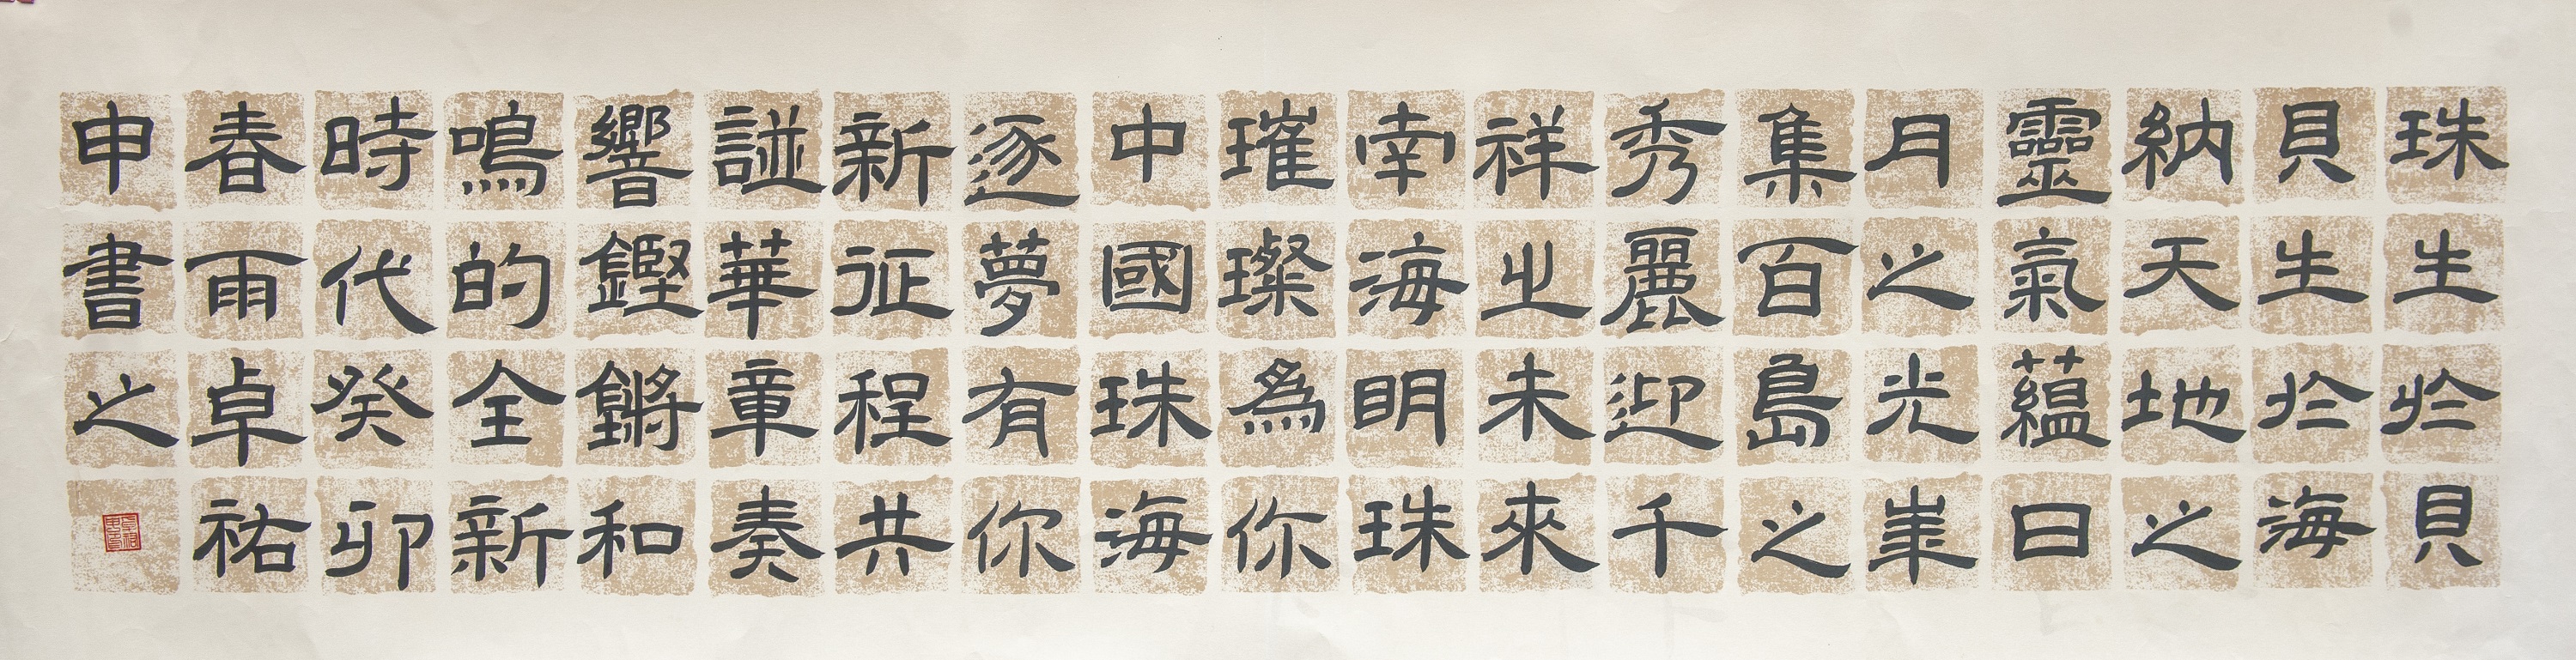 珠生於貝
貝生於海
納天地之
靈氣蘊日
月之光華
集百島之
秀麗迎千
祥之未來
南海明珠
璀璨為你
中國珠海
逐夢有你
新征程共
譜華章奏
響鏗鏘和
鳴的全新
時代癸卯
春雨卓祐
申書之